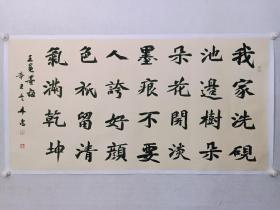 我家洗硯
池邊樹朵
朵花開淡
墨痕不要
人誇好顏
色祇留清
氣滿乾坤
王冕墨梅